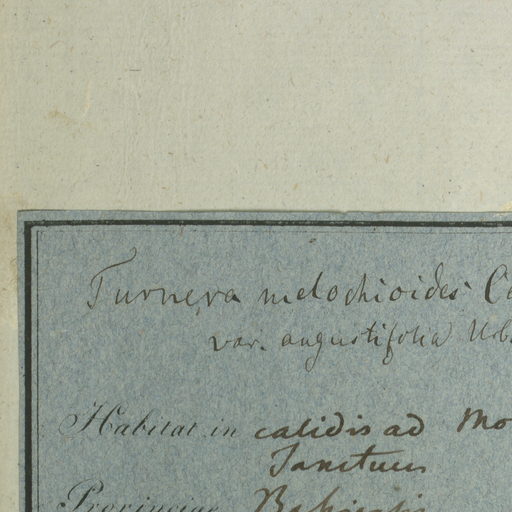 Turnera melochioides Ca
var. angustifolia Urb.
Habitat in calidis ad Mo
Sanctum
Provinciae Bahiensis